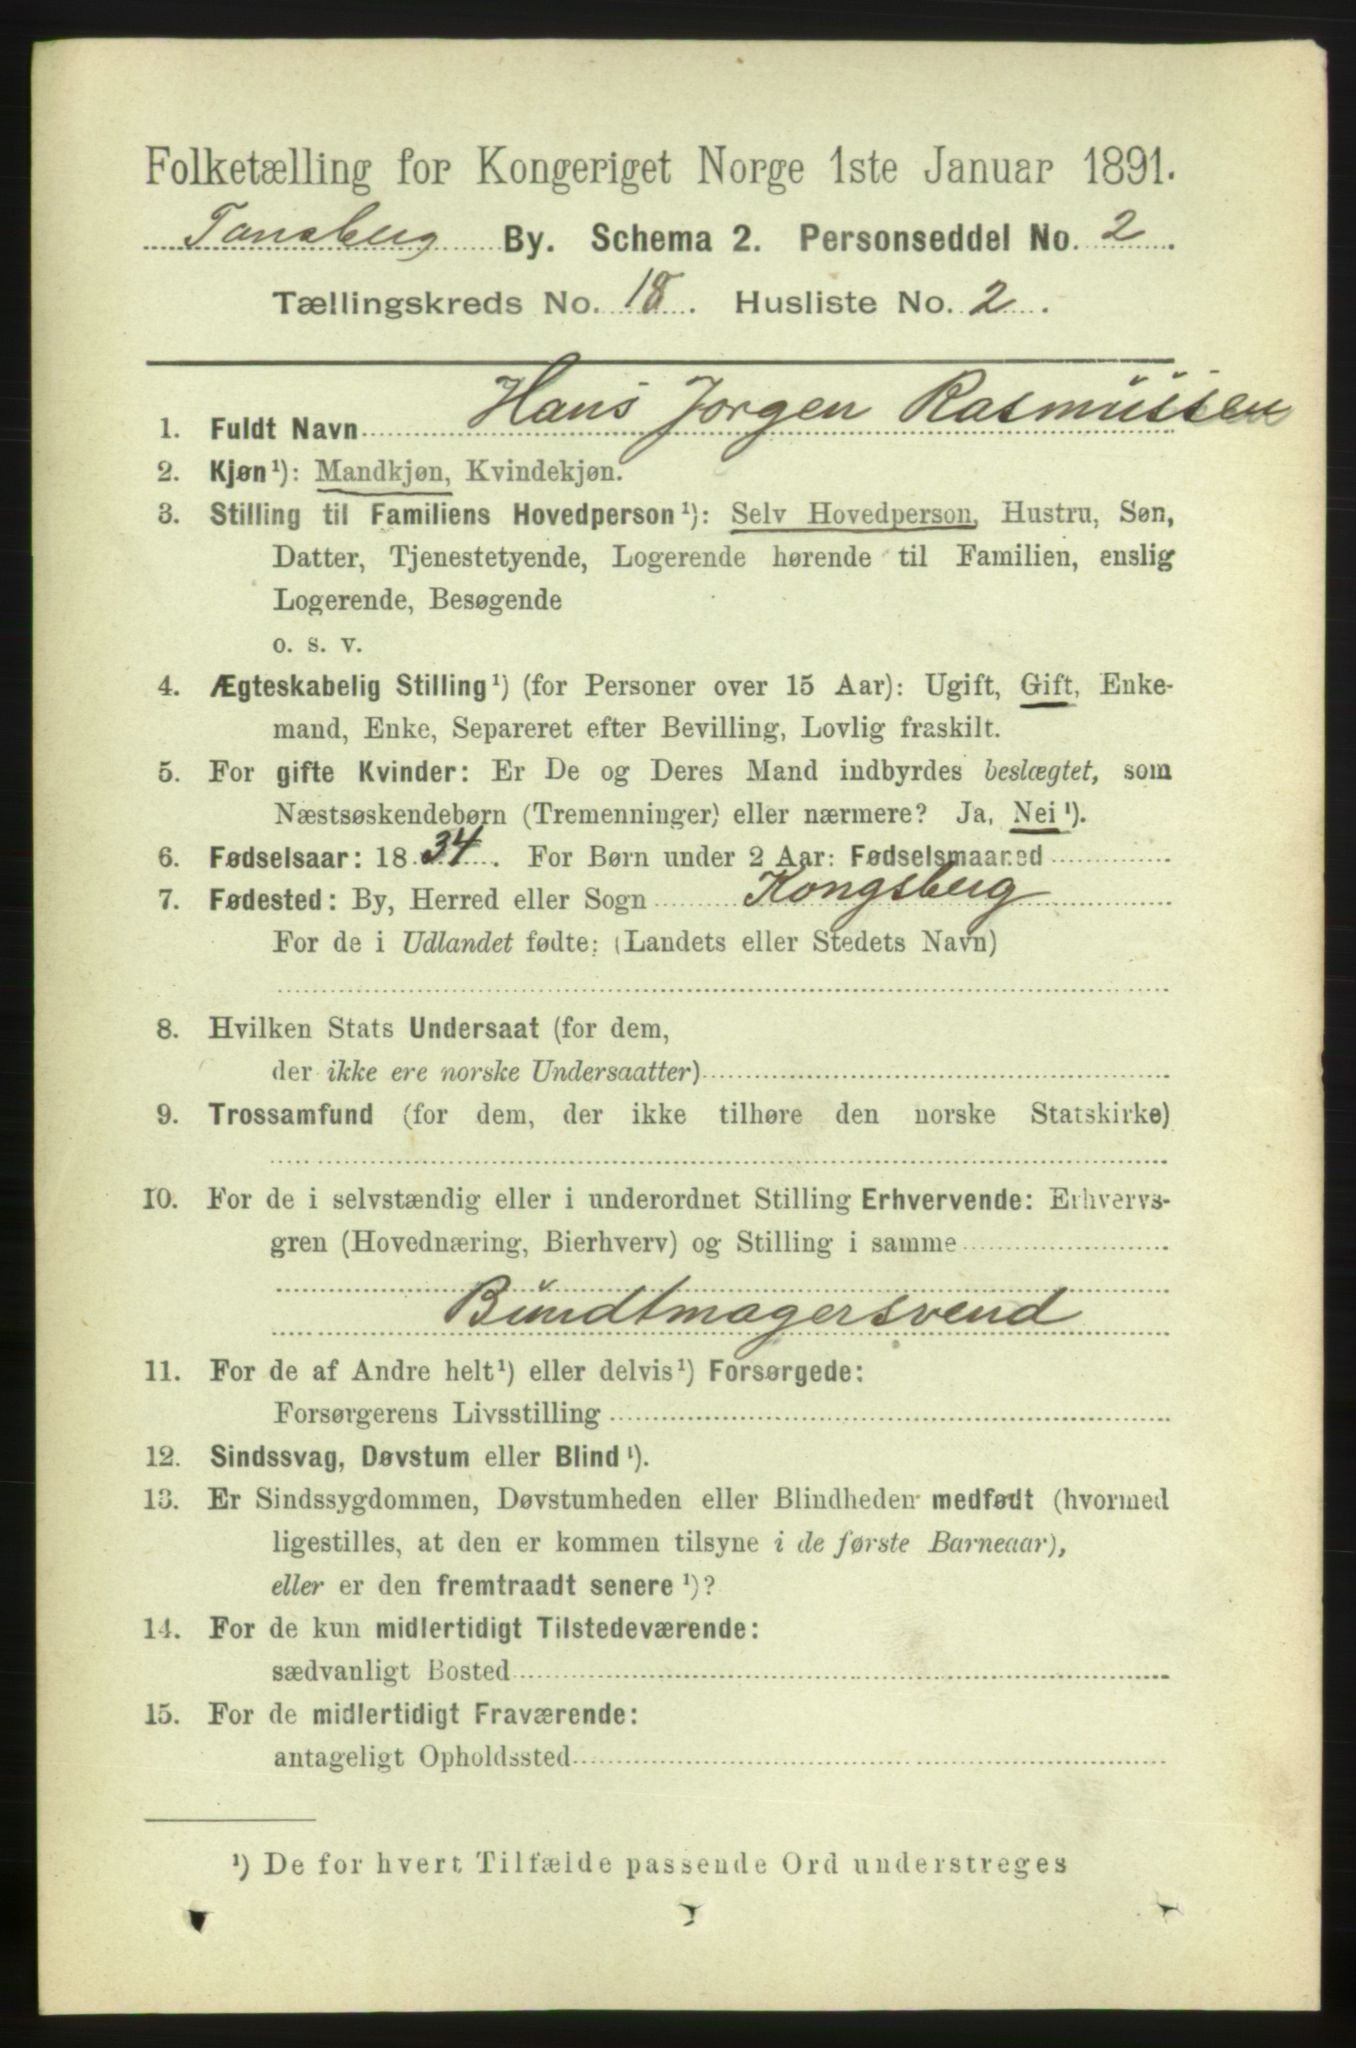 Folketælling for Kongeriget Norge 1ste Januar 1891.
Tønsberg By. Schema 2. Personseddel No. 2
Tællingskreds No. 18. Husliste No. 2.
1. Fuldt Navn Hans Jorgen Rasmussen
2. Kjøn¹): Mandkjøn, Kvindekjøn.
3. Stilling til Familiens Hovedperson¹): Selv Hovedperson, Hustru, Søn,
Datter, Tjenestetyende, Logerende hørende til Familien, enslig
Logerende, Besøgende
o. s. v.
4. Ægteskabelig Stilling¹) (for Personer over 15 Aar): Ugift, Gift, Enke-
mand, Enke, Separeret efter Bevilling, Lovlig fraskilt.
5. For gifte Kvinder: Er De og Deres Mand indbyrdes beslægtet, som
Næstsøskendebørn (Tremenninger) eller nærmere? Ja, Nei¹).
6. Fødselsaar: 1834. For Børn under 2 Aar: Fødselsmaaned
7. Fødested: By, Herred eller Sogn Kongsberg
For de i Udlandet fødte: (Landets eller Stedets Navn)
8. Hvilken Stats Undersaat (for dem,
der ikke ere norske Undersaatter)
9. Trossamfund (for dem, der ikke tilhøre den norske Statskirke)
10. For de i selvstændig eller i underordnet Stilling Erhvervende: Erhvervs-
gren (Hovednæring, Bierhverv) og Stilling i samme
Bundtmagersvend
11. For de af Andre helt¹) eller delvis¹) Forsørgede:
Forsørgerens Livsstilling
12. Sindssvag, Døvstum eller Blind¹).
13. Er Sindssygdommen, Døvstumheden eller Blindheden medfødt (hvormed
ligestilles, at den er kommen tilsyne i de første Barneaar),
eller er den fremtraadt senere¹)?
14. For de kun midlertidigt Tilstedeværende:
sædvanligt Bosted
15. For de midlertidigt Fraværende:
antageligt Opholdssted
¹) De for hvert Tilfælde passende Ord understreges